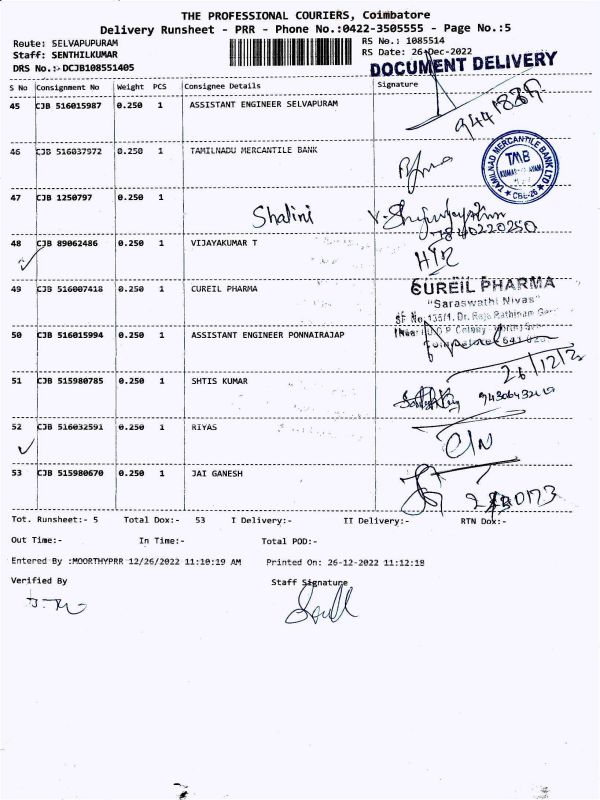 THE PROFESSIONAL COURIERS, Coimbatore
Delivery Runsheet - PRR - Phone No.:0422-3505555 - Page No.:5
Route: SELVAPUPURAM
RS No.: 1085514
Staff: SENTHILKUMAR
RS Date: 26-Dec-2022
DRS No.:-DCJB108551405
DOCUMENT DELIVERY
S No Consignment No Weight PCS Consignee Details Signature
45 CJB 516015987 0.250 1 ASSISTANT ENGINEER SELVAPURAM
46 CJB 516037572 0.250 1 TAMILNADU MERCANTILE BANK
TAMILNAD MERCANTILE BANK LTD
TMB
CBE-26
47 CJB 1250797 0.250 1
Shalini
48 CJB 89062486 0.250 1 VIJAYAKUMAR T
49 CJB 516007418 0.250 1 CUREIL PHARMA
CUREIL PHARMA
"Saraswathi Nivas"
SF No. 135/1, Dr. Raja Rathinam
50 CJB 516015994 0.250 1 ASSISTANT ENGINEER PONNAIRAJAP
26/12/2
51 CJB 515980785 0.250 1 SHTIS KUMAR
52 CJB 516032591 0.250 1 RIYAS
53 CJB 515980670 0.250 1 JAI GANESH
Tot. Runsheet:- 5 Total Dox:- 53 I Delivery:- II Delivery:- RTN Dox:-
Out Time:- In Time:- Total POD:-
Entered By :MOORTHYPRR 12/26/2022 11:10:19 AM Printed On: 26-12-2022 11:12:18
Verified By Staff Signature